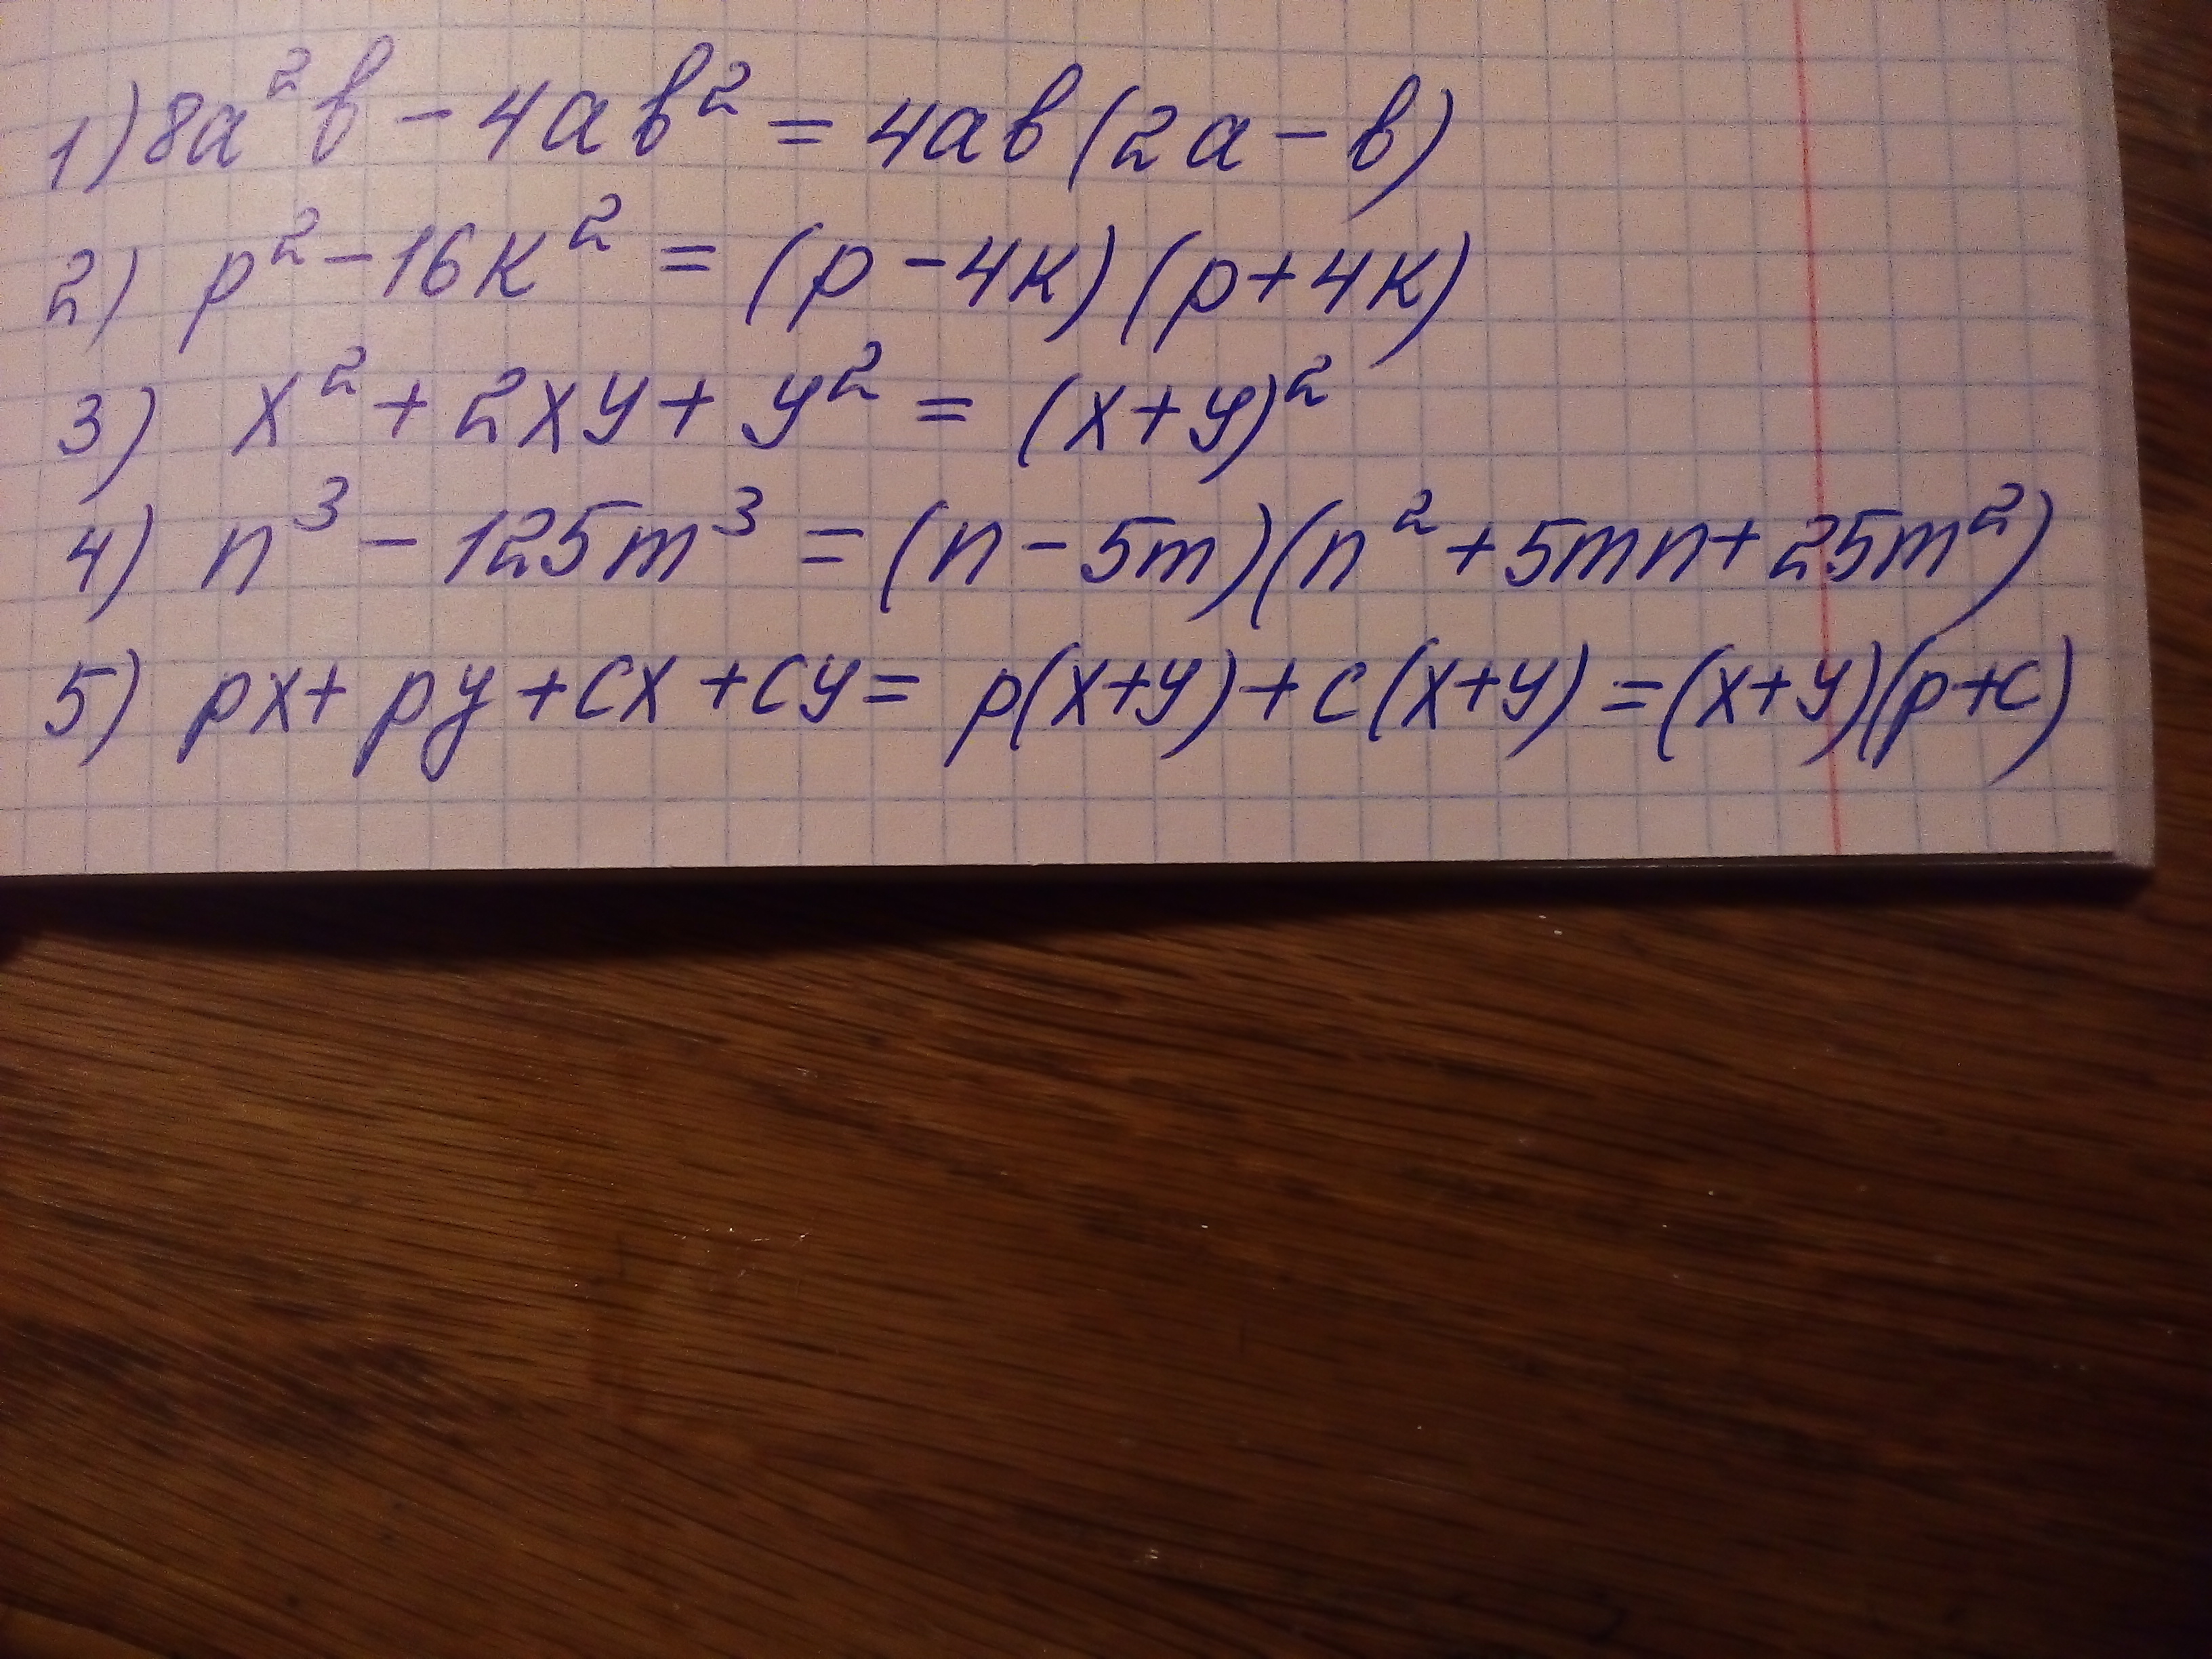 1) 8a²b - 4ab² = 4ab(2a - b)
2) p² - 16k² = (p - 4k)(p + 4k)
3) x² + 2xy + y² = (x + y)²
4) n³ - 125m³ = (n - 5m)(n² + 5mn + 25m²)
5) px + py + cx + cy = p(x+y) + c(x+y) = (x+y)(p+c)